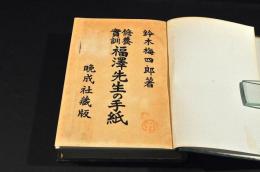 鈴木梅四郎著
修養
實訓
福澤先生の手紙
晩成社藏版